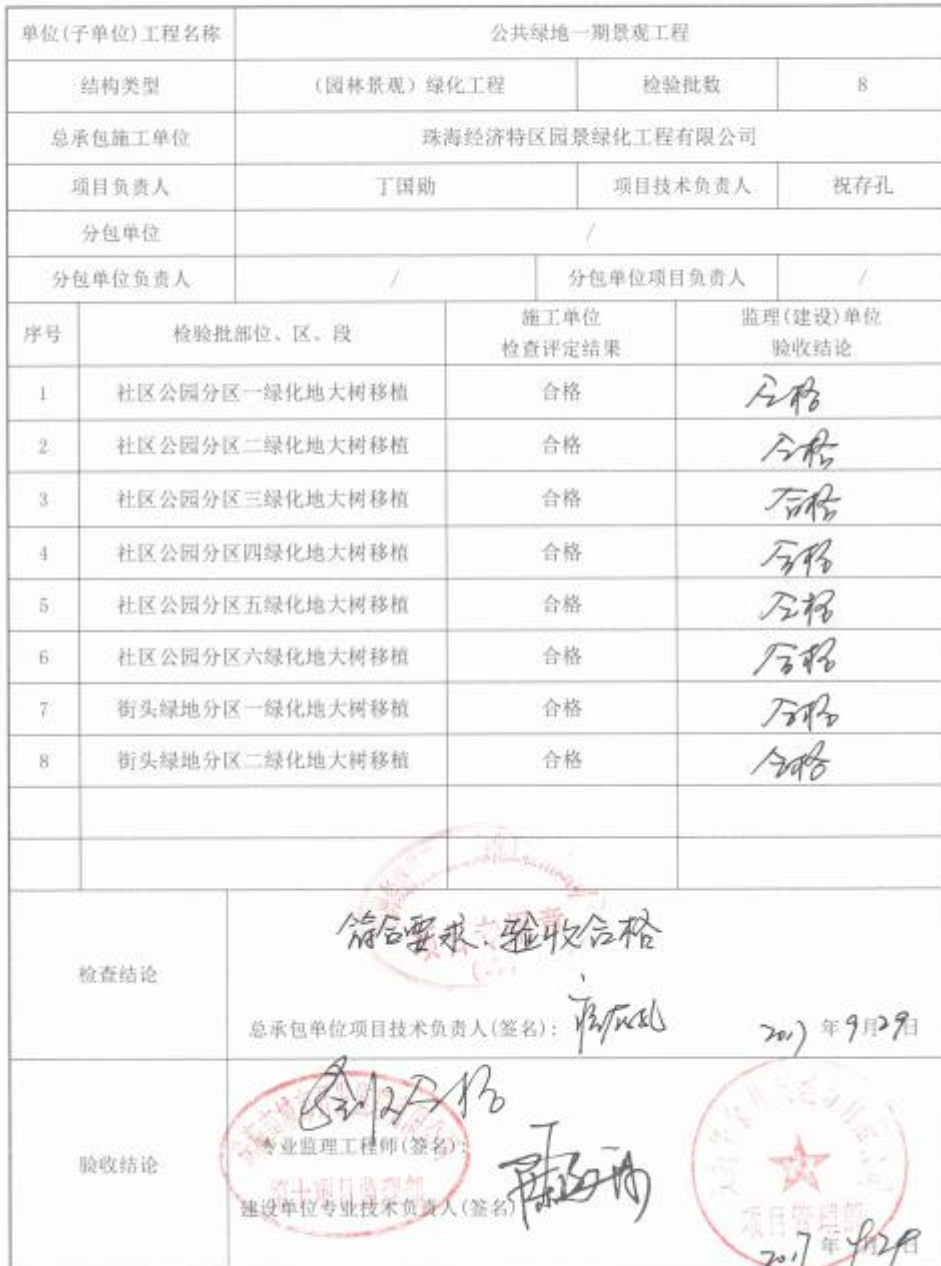 单位(子单位)工程名称 公共绿地一期景观工程
结构类型 (园林景观)绿化工程 检验批数 8
总承包施工单位 珠海经济特区园景绿化工程有限公司
项目负责人 丁国勋 项目技术负责人 祝存孔
分包单位 /
分包单位负责人 / 分包单位项目负责人 /
序号 检验批部位、区、段 施工单位 监理(建设)单位
检查评定结果 验收结论
1 社区公园分区一绿化地大树移植 合格 合格
2 社区公园分区二绿化地大树移植 合格 合格
3 社区公园分区三绿化地大树移植 合格 合格
4 社区公园分区四绿化地大树移植 合格 合格
5 社区公园分区五绿化地大树移植 合格 合格
6 社区公园分区六绿化地大树移植 合格 合格
7 街头绿地分区一绿化地大树移植 合格 合格
8 街头绿地分区二绿化地大树移植 合格 合格
符合要求、验收合格
检查结论
总承包单位项目技术负责人(签名): 2017 年 9 月 29 日
验收合格
专业监理工程师(签名):
验收结论
建设单位专业技术负责人(签名)
项目管理部
2017 年 9 月 29 日